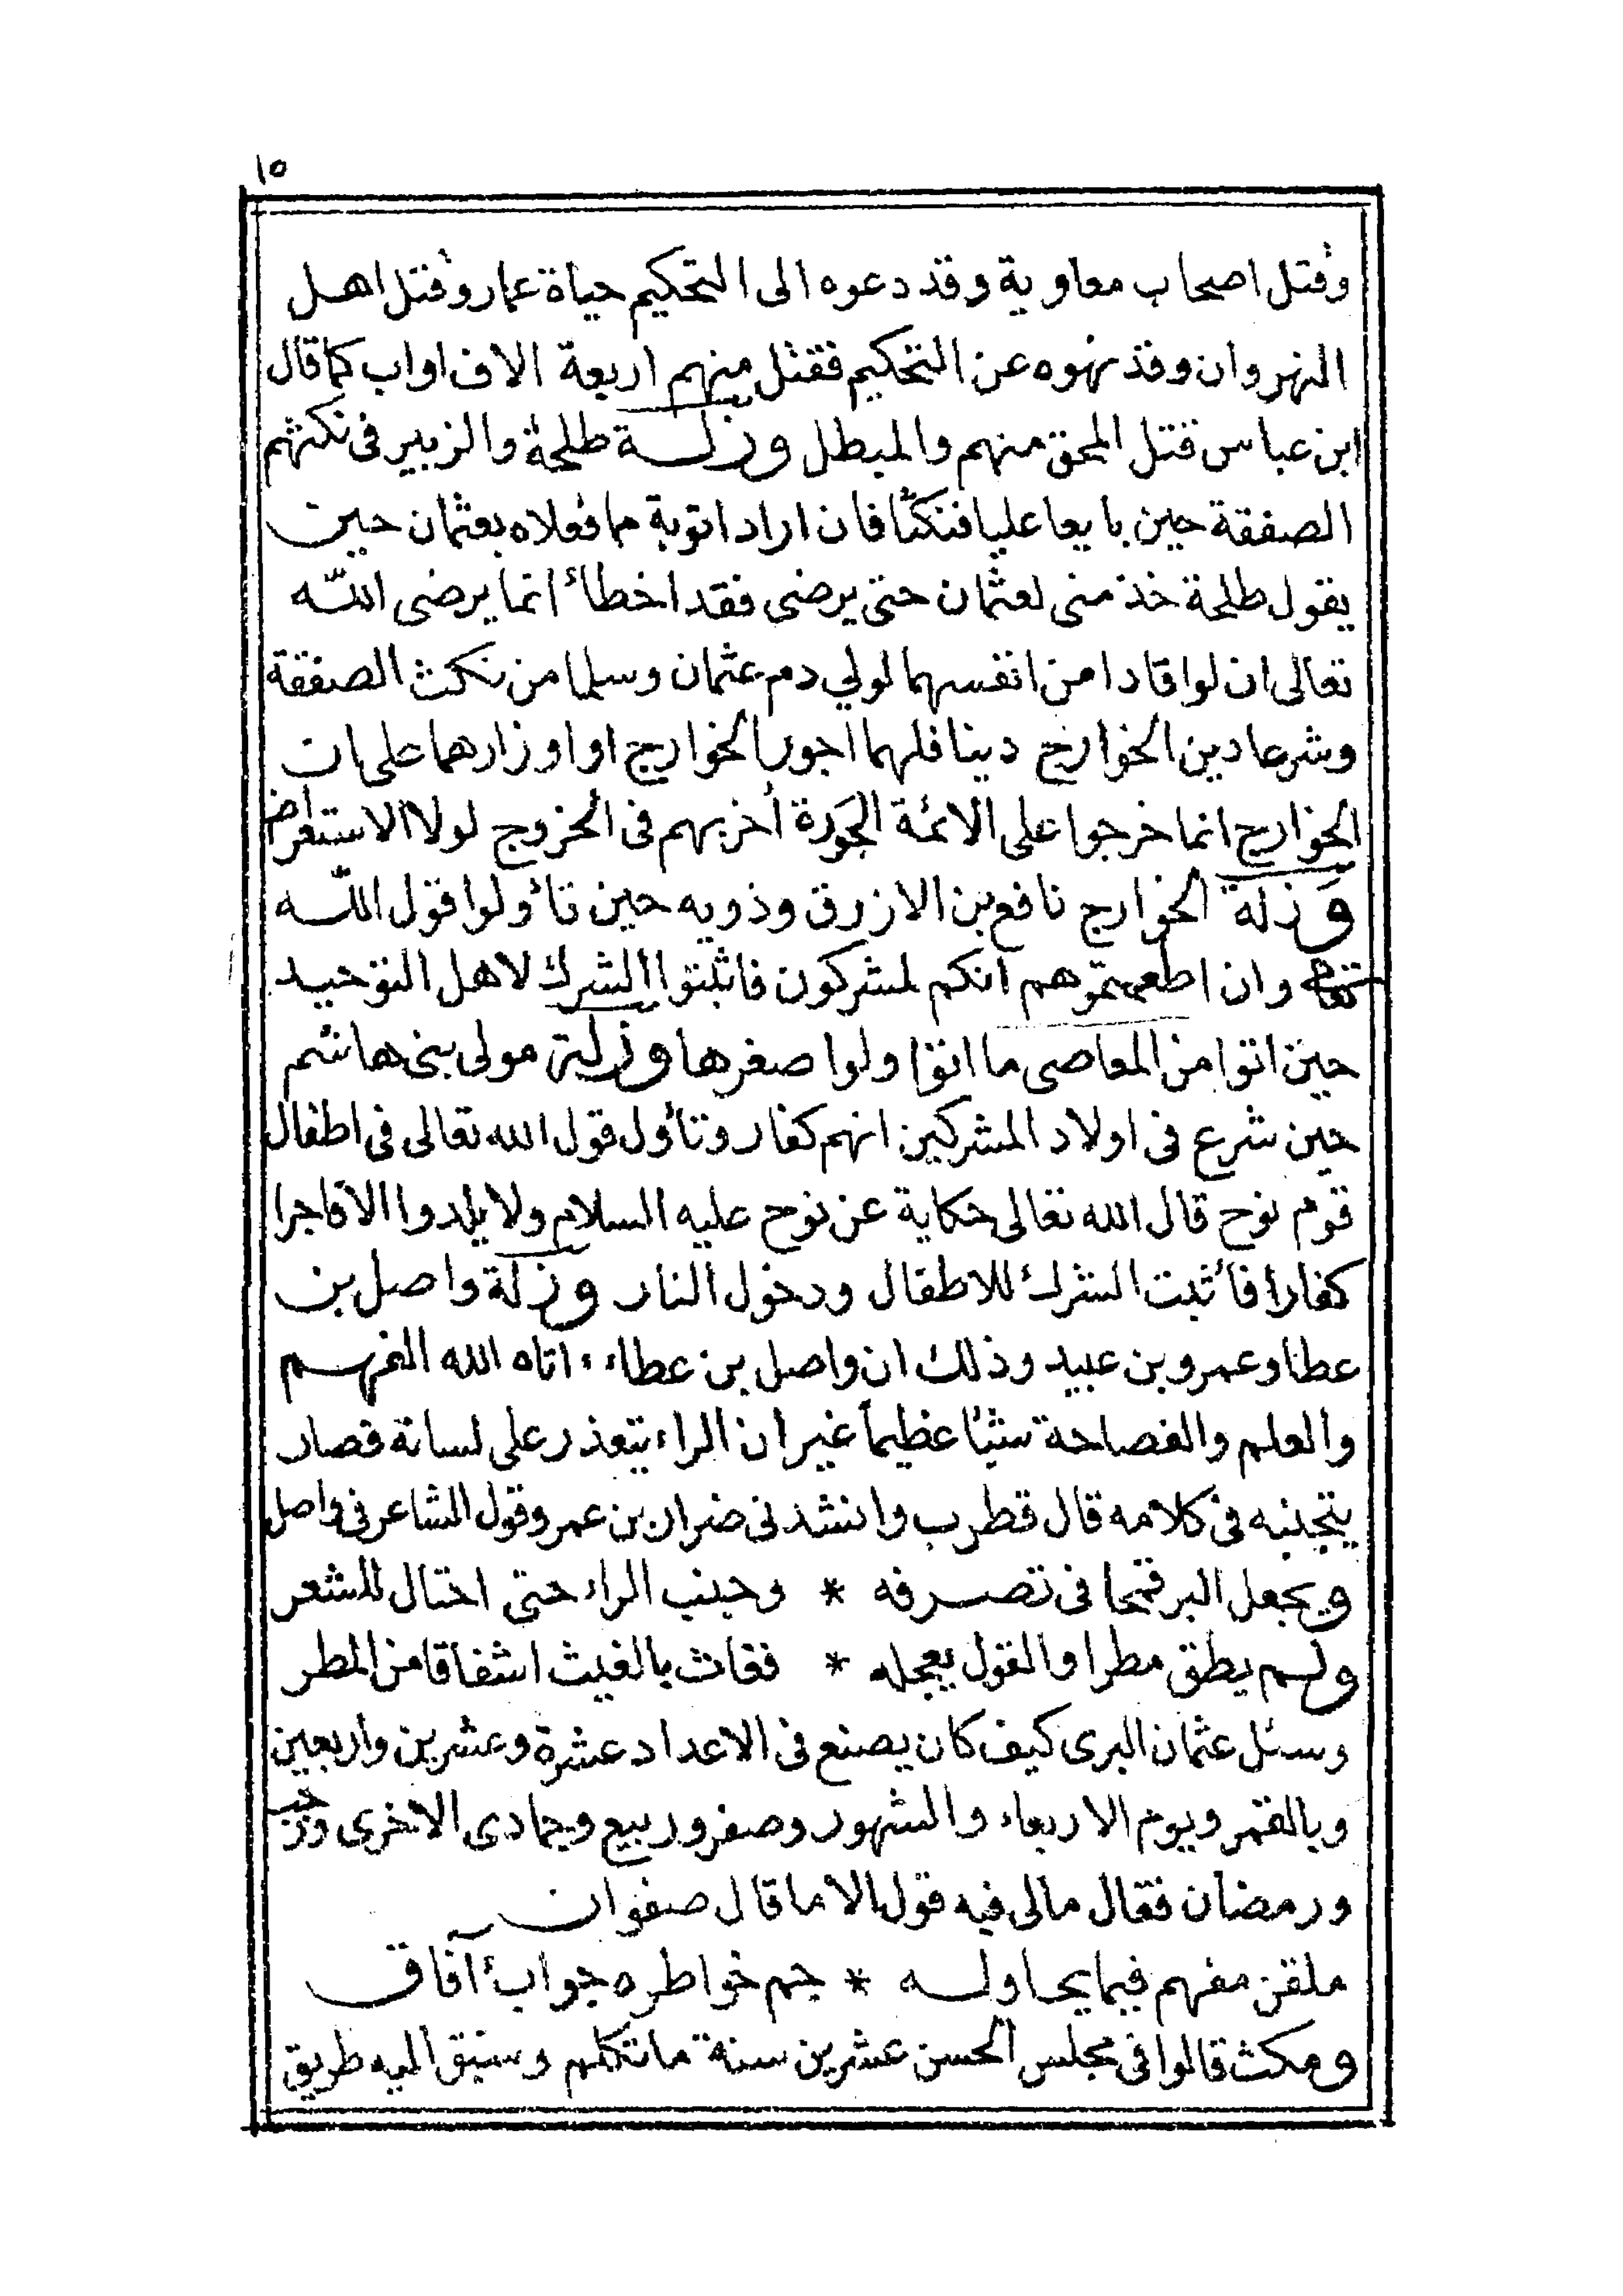 ١٥
وقتل اصحاب معاوية وقد دعوه الى التحكيم حياة عمار وقتل اهل
النهروان وقد نهوه عن التحكيم فقتل منهم اربعة الاف اواب كما قال
ابن عباس قتل المحق منهم والمبطل وزلة طلحة والزبير فى نكثهم
الصفقة حين بايعا عليا فنكثا فان ارادا توبة مما فعلاه بعثمان حين
يقول طلحة خذ منى لعثمان حتى يرضى فقد اخطأ انما يرضى الله
تعالى ان لو اقادا من انفسهما لولي دم عثمان وسلما من نكث الصفقة
وشرعا دين الخوارج دينا فلهما اجور الخوارج او اوزارهما على ان
الخوارج انما خرجوا على الائمة الجَورة أخر بهم فى الخروج لولا الاستعراض
وَزلة الخوارج نافع بن الازرق وذويه حين تأولوا قول الله
تعالى وان اطعمتموهم انكم لمشركون فاثبتوا الشرك لاهل التوحيد
حين اتوا من المعاصى ما اتوا ولوا صغرها وزلة مولى بنى هاشم
حين شرع فى اولاد المشركين انهم كفار وتأول قول الله تعالى فى اطفال
قوم نوح قال الله تعالى حكاية عن نوح عليه السلام ولا يلدوا الا فاجرا
كفارا فأثبت الشرك للاطفال ودخول النار وزلة واصل بن
عطا وعمرو بن عبيد وذلك ان واصل بن عطاء اتاه الله الفهم
والعلم والفصاحة شيئا عظيماً غير ان الراء يتعذر على لسانه فصار
يتجنبه فى كلامه قال قطرب وانشدنى ضران بن عمر وقول الشاعر فى واصل
ويجعل البر قمحا فى تصرفه * وجنب الراء حتى احتال للشعر
ولم يطق مطرا والقول يعجله * فغاث بالغيث اشفاقا من المطر
وسئل عثمان البرى كيف كان يصنع فى الاعداد عشرة وعشرين واربعين
وبالقمر ويوم الاربعاء والشهور وصفر وربيع وجمادى الاخرى ورجب
ورمضان فقال مالى فيه قول الا ما قال صفوان
ملقن مفهم فيما يحاوله * جم خواطره جواب آفاق
ومكث قالوا فى مجلس الحسن عشرين سنة ما تكلم وسبق اليه طريق